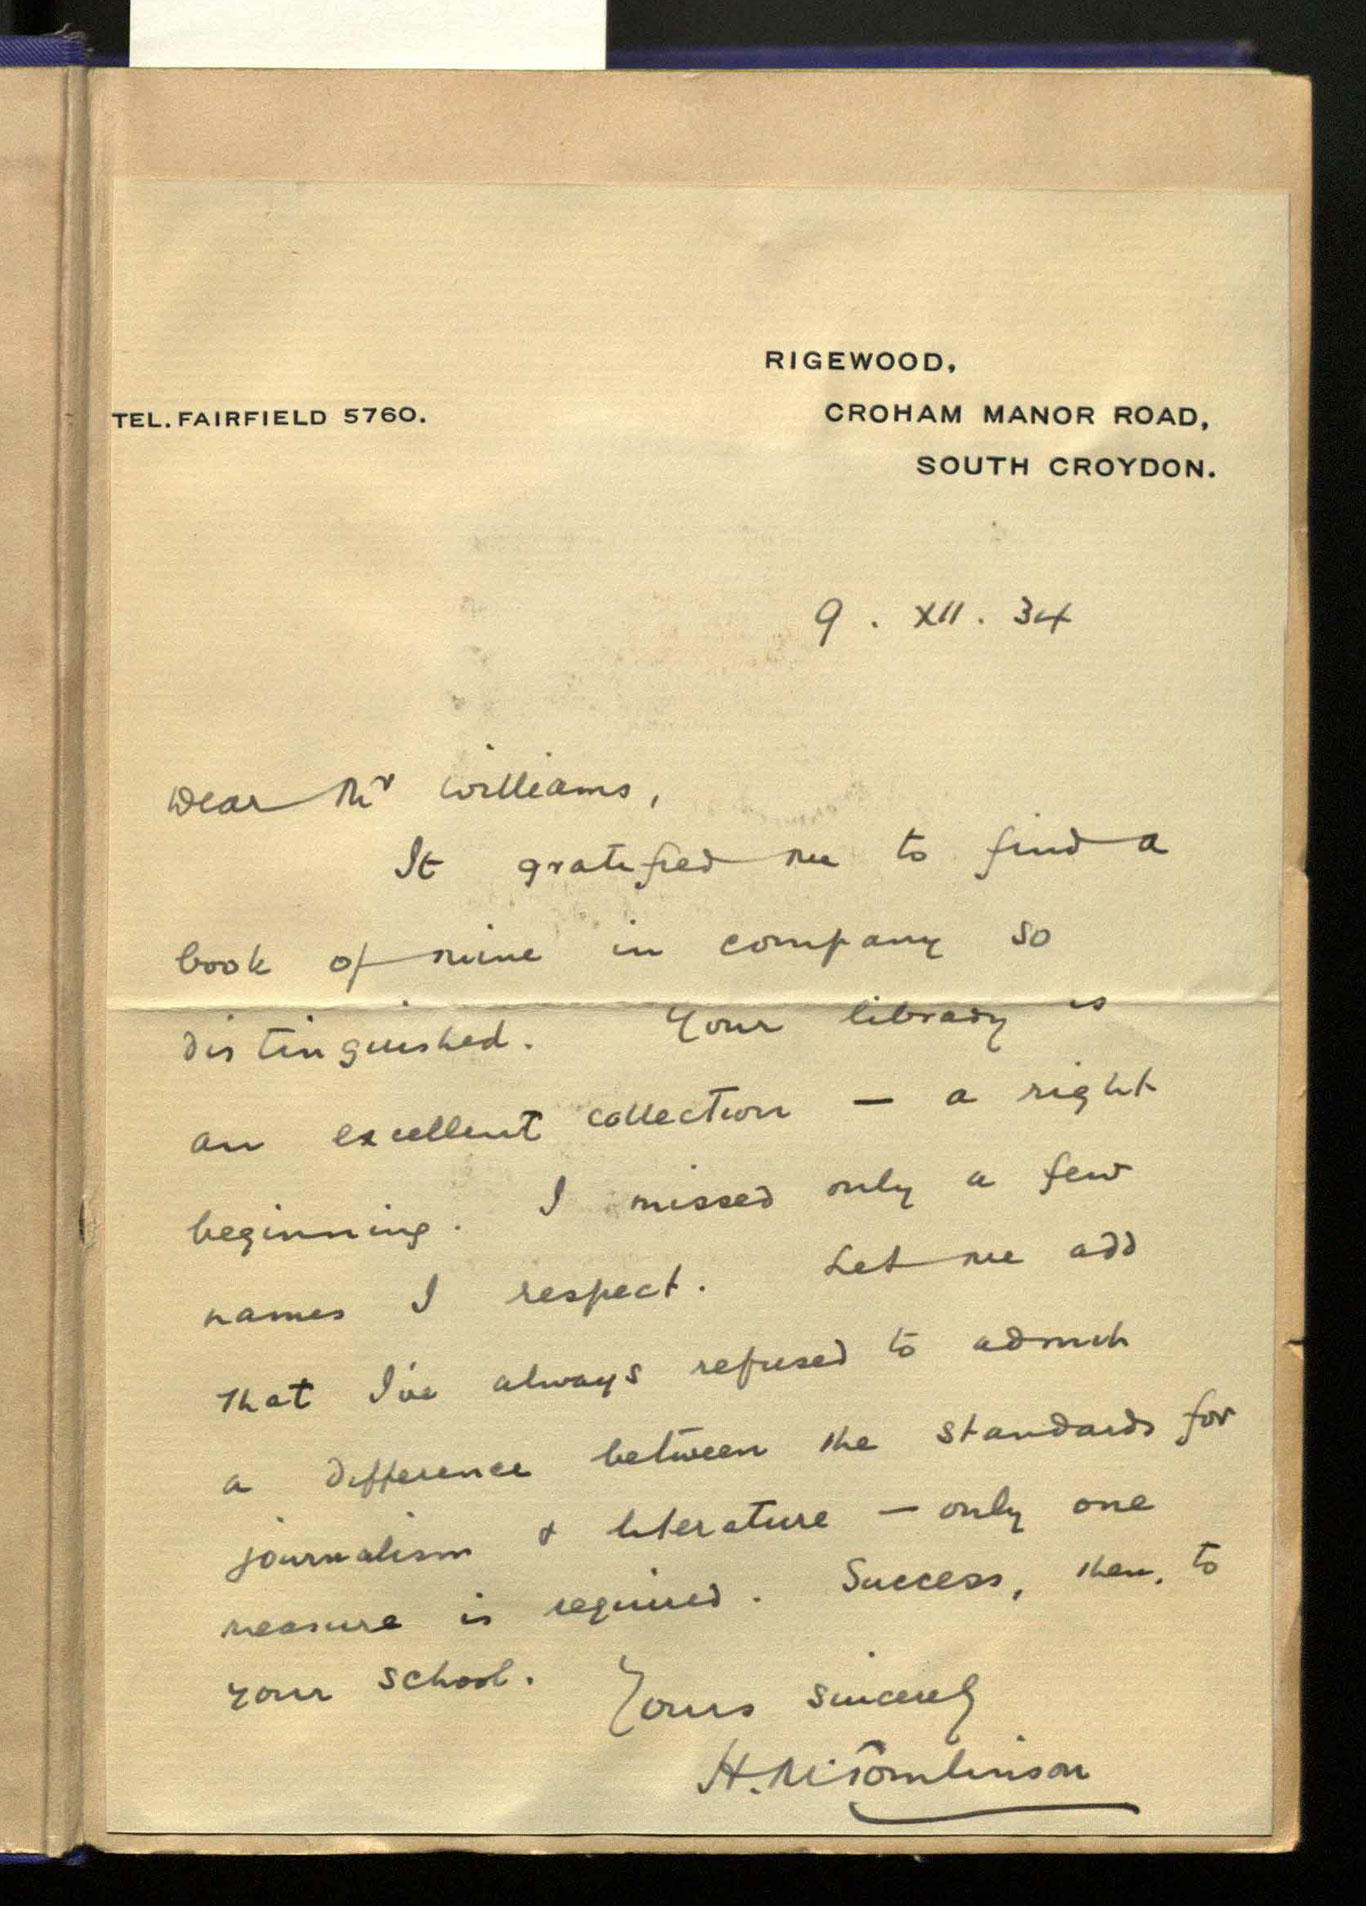 RIGEWOOD,
TEL. FAIRFIELD 5760.
CROHAM MANOR ROAD,
SOUTH CROYDON.
9. XII. 34
Dear Mr Williams,
It gratified me to find a
book of mine in company so
distinguished. Your library is
an excellent collection — a right
beginning. I missed only a few
names I respect. Let me add
that I've always refused to admit
a difference between the standards for
journalism & literature — only one
measure is required. Success, then, to
your school. Yours sincerely
H. M. Tomlinson